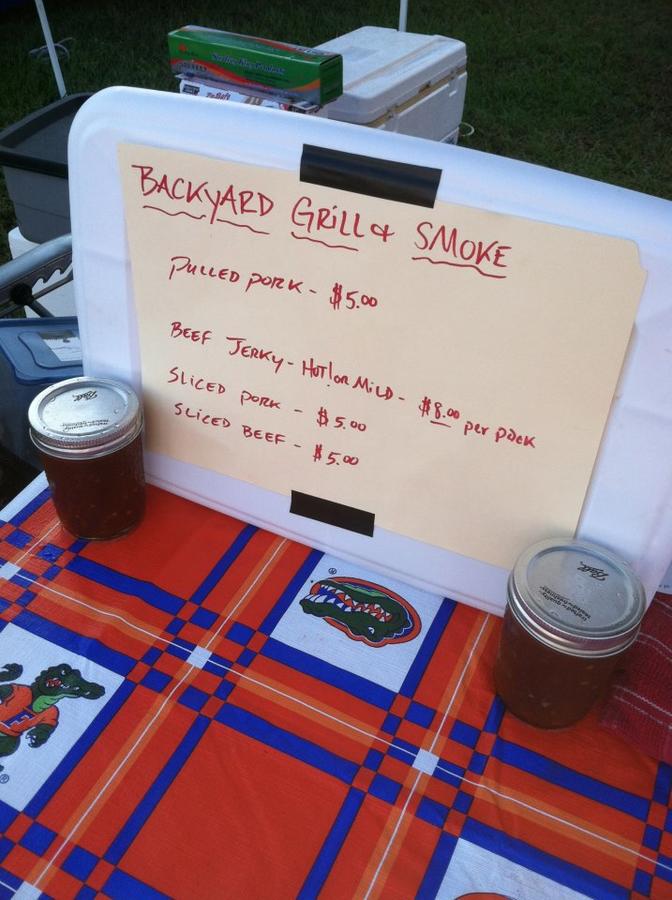 BACKYARD GRILL & SMOKE
PULLED PORK - $5.00
BEEF JERKY - HOT! OR MILD - $8.00 per pack
SLICED PORK - $5.00
SLICED BEEF - $5.00
Ball
Ball